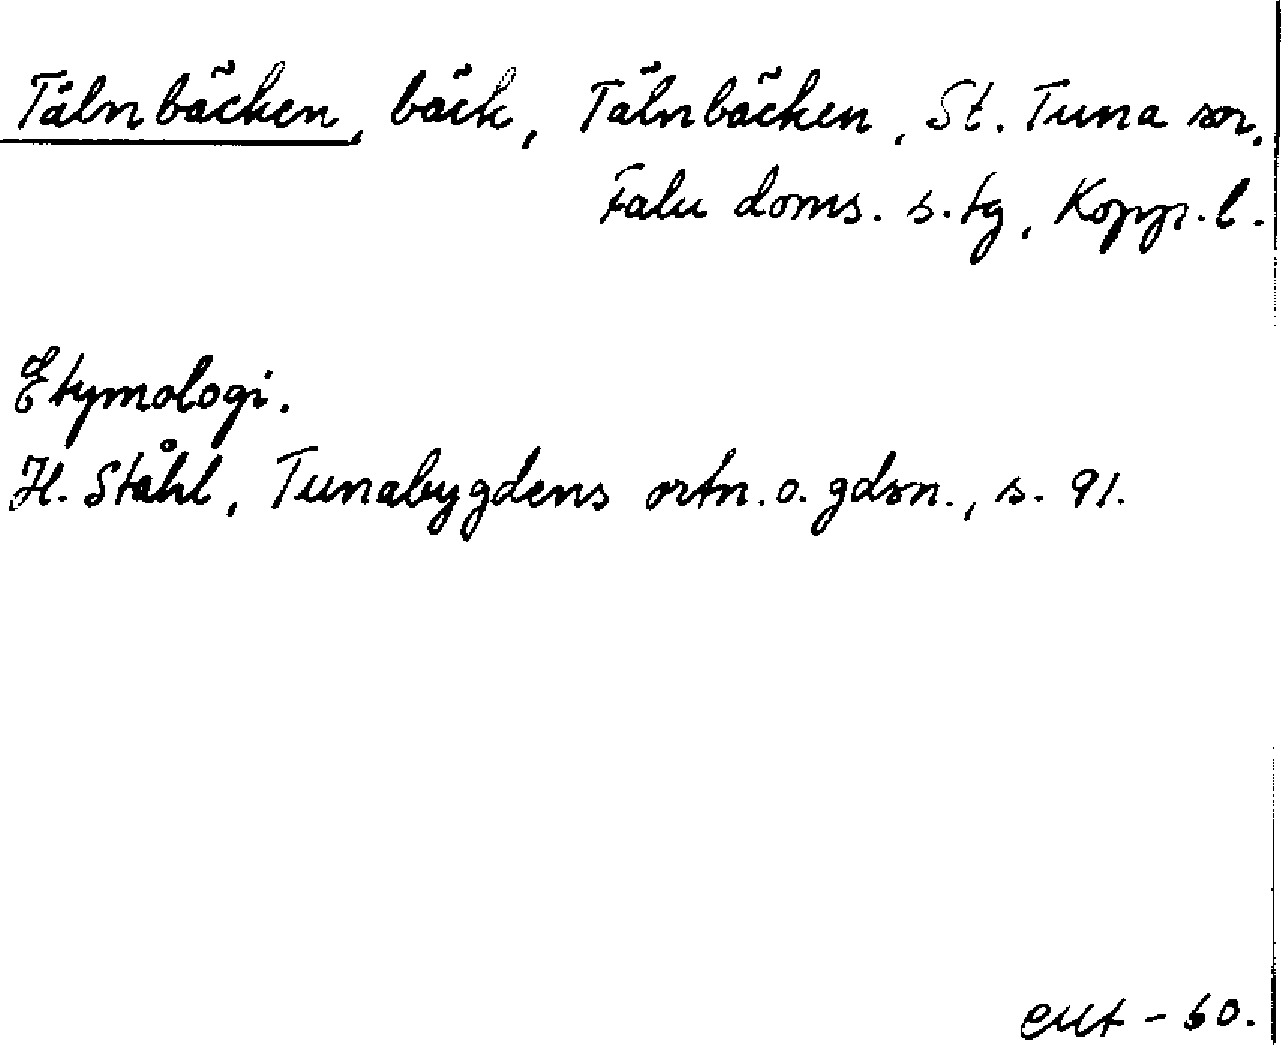 Tälnbäcken, bäck, Tälnbäcken, St. Tuna sn.
Falu doms. s. tg, Kopp. l.
Etymologi.
H. Ståhl, Tunabygdens ortn. o. gdsn., s. 91.
-60.